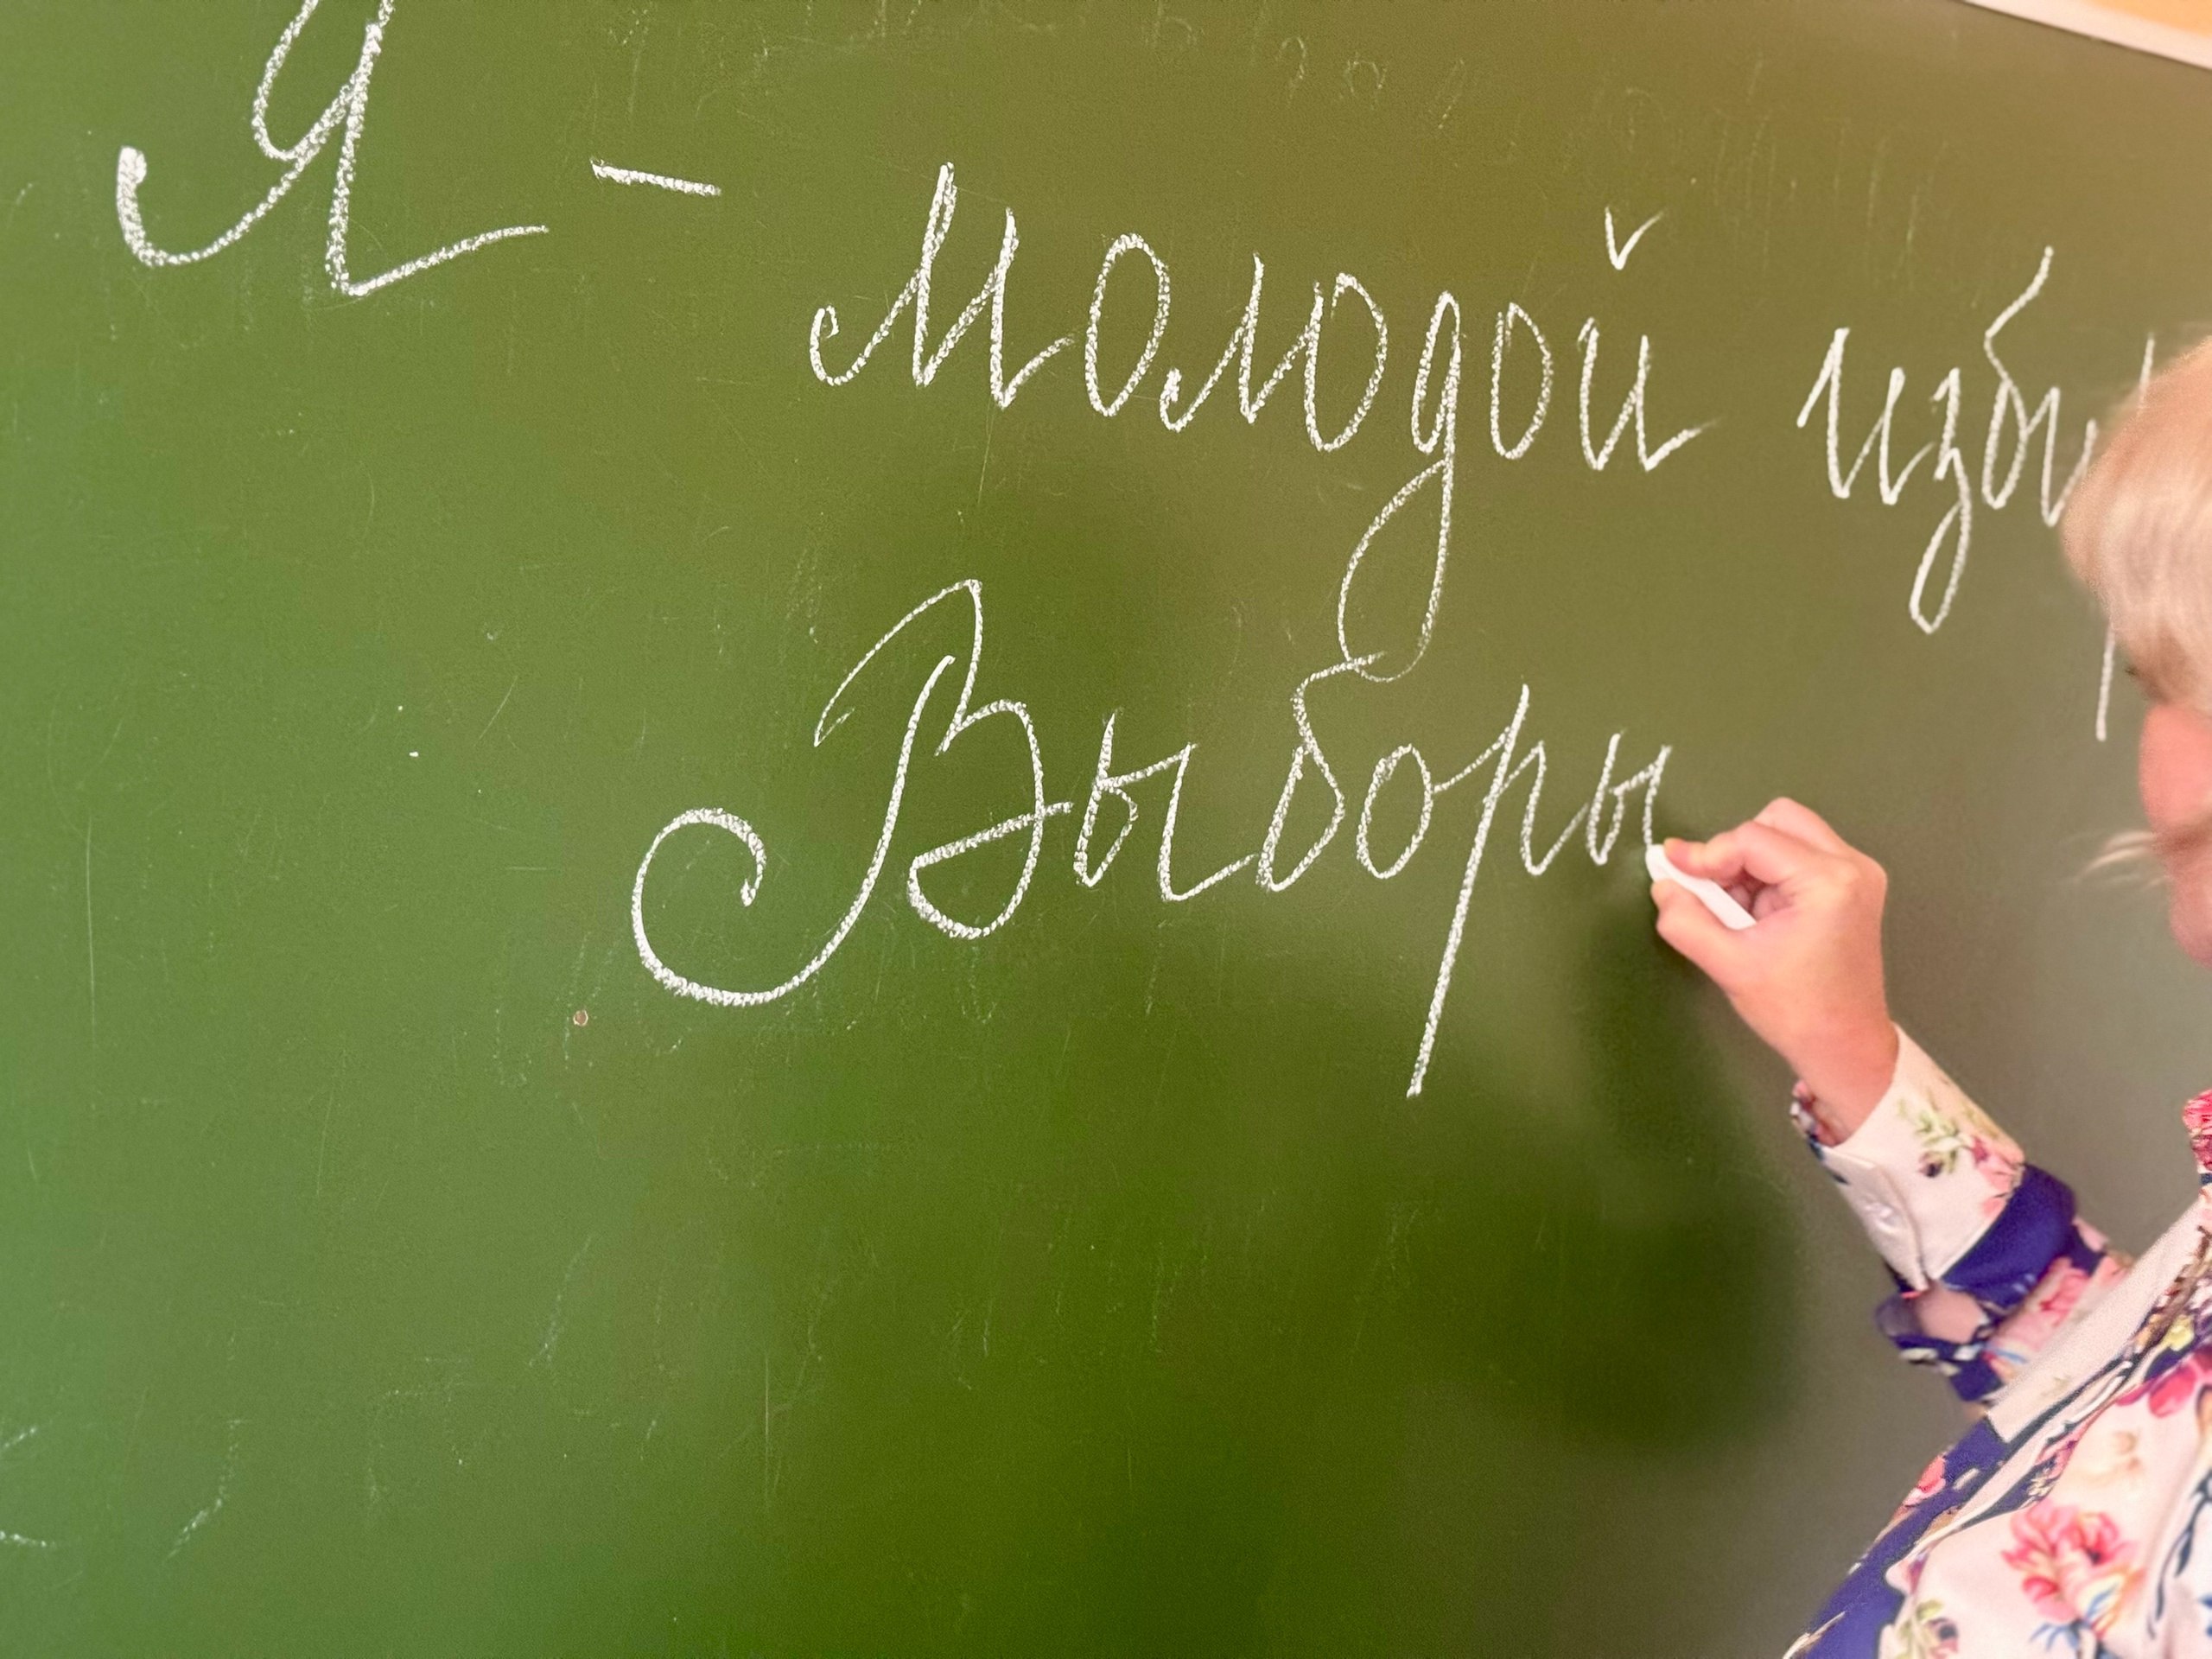 Я - молодой изби
Выборы